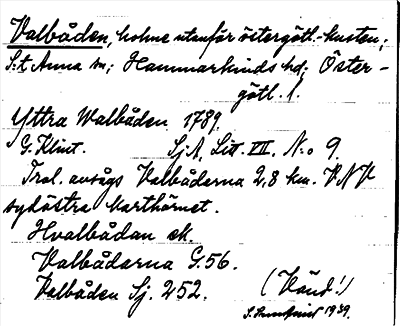 Valbåden, holme utanför östergötl.-kusten;
S:t Anna sn; Hammarkinds hd; Öster-
götl. l.
Yttra Walbåden 1789.
G. Klint. Sj.A, Litt. VII. No 9.
Trol. avsågs Valbådarna 2,8 km. VNV
sydöstra karthörnet.
Hvalbådan ek.
Valbådarna G.56.
Valbåden Sj. 252.
(Vänd!)
1939.